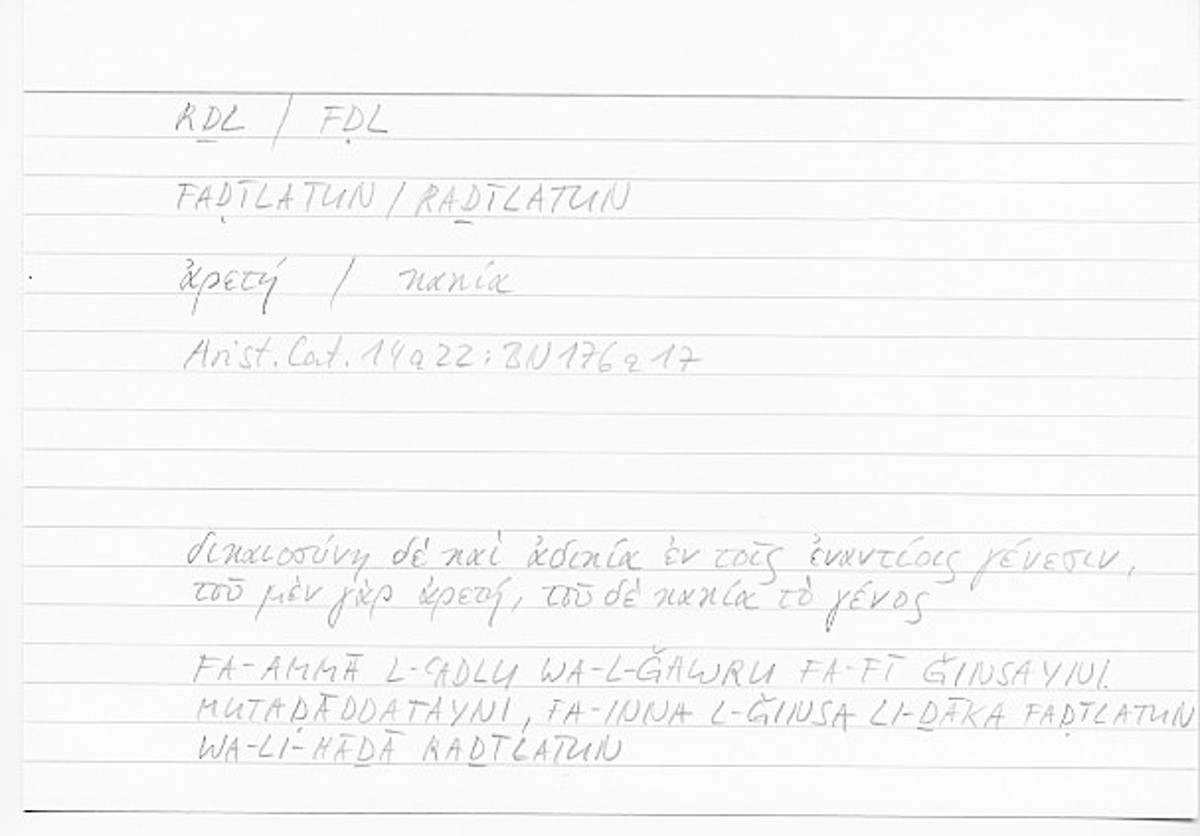 RḎL / FḌL
FAḌĪLATUN / RAḎĪLATUN
ἀρετή / κακία
Arist. Cat. 14a22 : BN176a17
δικαιοσύνη δὲ καὶ ἀδικία ἐν τοῖς ἐναντίοις γένεσιν,
τοῦ μὲν γὰρ ἀρετή, τοῦ δὲ κακία τὸ γένος
FA-AMMĀ L-ʿADLU WA-L-ǦAWRU FA-FĪ ǦINSAYNI
MUTAḌĀDDATAYNI, FA-INNA L-ǦINSA LI-ḎĀKA FAḌĪLATUN
WA-LI-HĀḎĀ RAḎĪLATUN